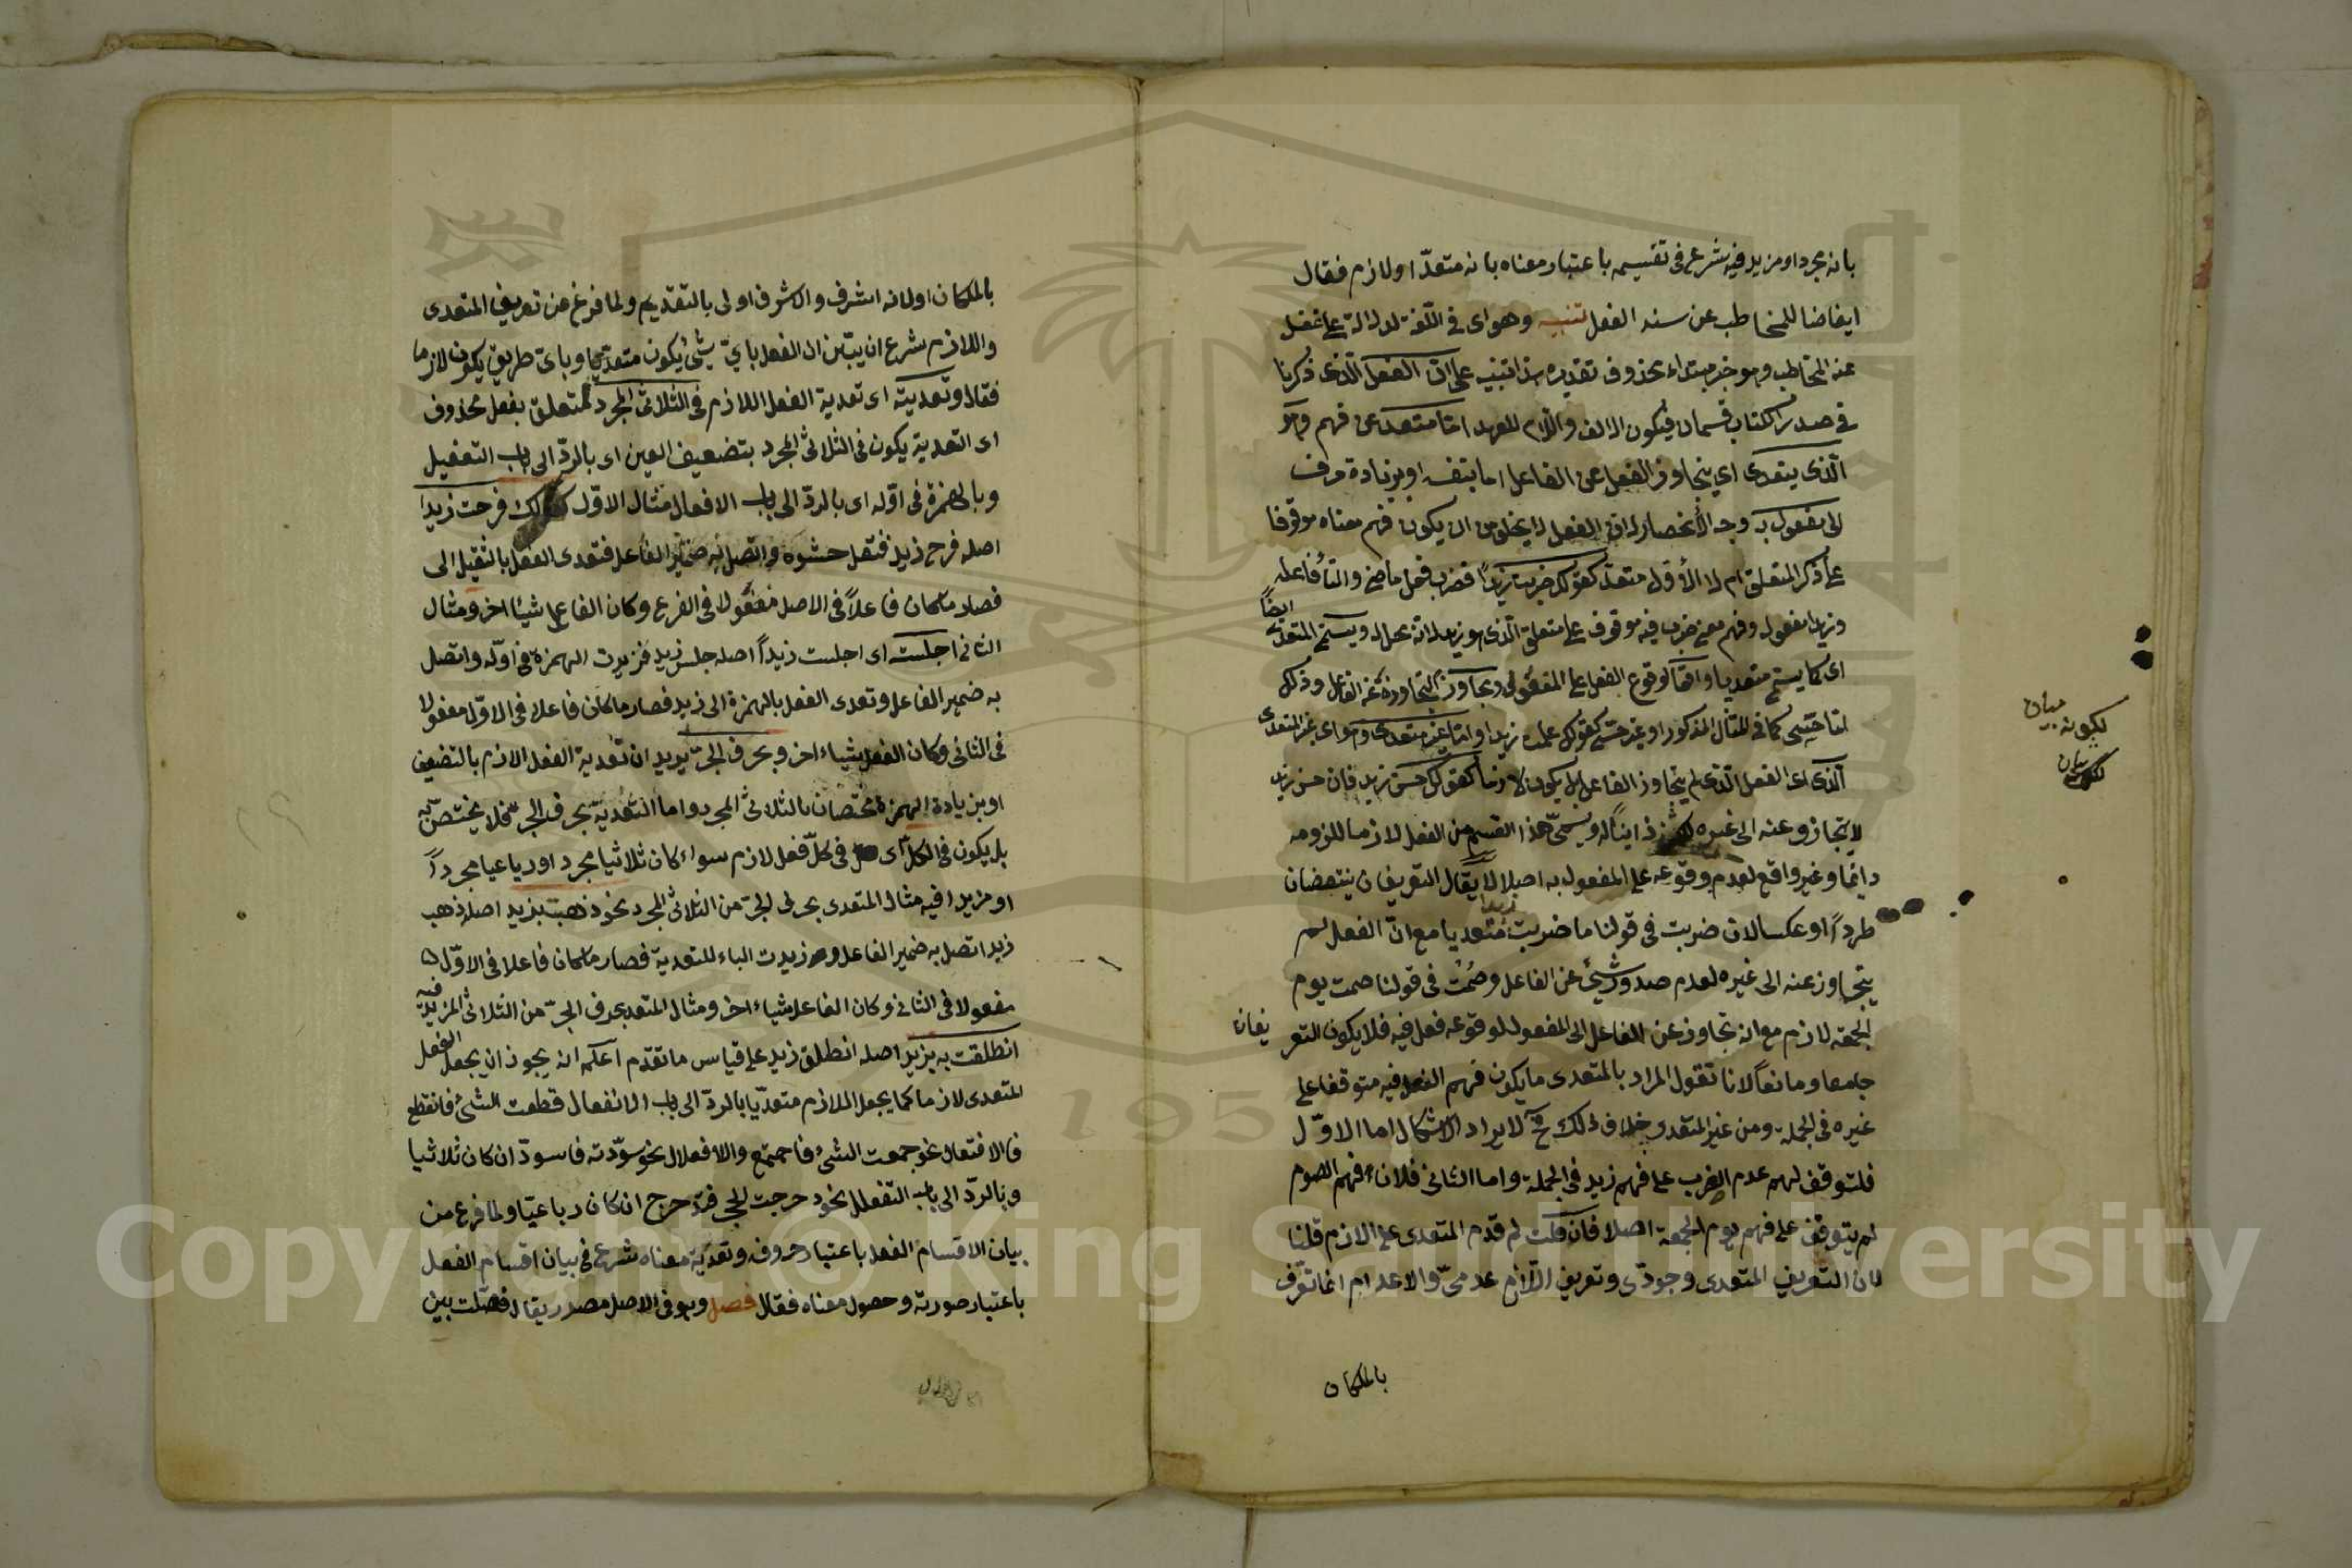 بانه مجرد او مزيد فيه شرع فى تقسيمه باعتبار معناه بانه متعدّ او لازم فقال
ايقاضا للمخاطب عن سنه الغفل تنبيه وهو اى فى اللّغة لدلالة على غفل
عنه المخاطب وهو خبر مبتداء محذوف تقديره هذا تنبيه على انّ الفعل الّذى ذكرنا
فى صدر الكتاب قسمان فيكون الالف واللّام للعهد امّا متعد عن فهم وهو
الّذى يتعدى اى يتجاوز الفعل عن الفاعل اما بنفسه او بزيادة حرف
الى مفعول به وجه الأنحصار ان الفعل لا يخلو من ان يكون فهم معناه موقوفا
على ذكر المتعلق ام لا الأول متعدّ كقولك ضربت زيداً فضرب فعل ماض والتأ فاعله
وزيدا مفعوله وفهم معنى ضرب فيه موقوف على متعلق الّذى هو زيد لانه محل له ويسمّى المتعدى ايضاً
اى كما يسمّى متعديا واقعاً لوقوع الفعل على المفعول ومجاوزا لتجاوزه عن الفاعل وذلك
امّا حسّى كما فى المثال المذكور او غير حسّى كقولك علمت زيدا وامّا غير متعدى وهو اى غير المتعدى
الّذى اى الفعل الّذى لم يتجاوز الفاعل بل يكون لازما كقولك حسن زيد فان حسن زيد
لا يتجاز وعنه الى غيره ويسمّى هذا القسم من الفعل لازما للزومه
دائما وغير واقع لعدم وقوعه على المفعول به اصلا لا يقال التعريفان ينتقضان
طرداً او عكسا لان ضربت فى قولنا ما ضربت زيدا متعديا مع انّ الفعل لم
يتجاوز عنه الى غيره لعدم صدور شيئ عن الفاعل وصُمْت فى قولنا صمت يوم
الجمعة لازم مع انه تجاوز عن الفاعل الى المفعول لوقوعه فعل فيه فلا يكون التعر يفان
جامعا ومانعاً لانا نقول المراد بالمتعدى ما يكون فهم الفعل فيه متوقفا على
غيره فى الجملة ومن غير المتعدى خلاف ذلك ح لا يراد الاشكال اما الاوّل
فلتوقف لهم عدم الضرب على فهم زيد فى الجملة واما الثانى فلانّ فهم الصوم
لم يتوقف على فهم يوم الجمعة اصلا فان قلت لم قدّم المتعدى على الازم قلنا
لان التعريف المتعدى وجودىّ وتعريف اللّازم عدمىّ والاعدام انما تعرّف
بالملكات
لكونه بيان
بيان
بالملكات اولانه اشرف والاشرف اولى بالتقديم ولما فرغ من تعريف المتعدى
واللازم شرع ان يبيّن ان الفعل بايّ شيئ يكون متعديا وباىّ طريق يكون لازما
فقال وتعديته اى تعدية الفعل اللازم فى الثلاثى المجرد متعلق بفعل محذوف
اى التعدية يكون فى الثلاثى المجرد بتضعيف العين اى بالردّ الى باب التفعيل
وبالهمزة فى اوّله اى بالردّ الى باب الافعال مثال الاوّل كقولك فرحت زيدا
اصله فرح زيد فثقل حشوه واتصل به ضمير الفاعل فتعدى الفعل بالثقيل الى
فصار ما كان فاعلاً فى الاصل مفعولا فى الفرع وكان الفاعل شيئا اخر ومثال
الثانى اجلسته اى اجلست زيداً اصله جلس زيد فزيدت الهمزة فى اوّله واتصل
به ضمير الفاعل وتعدى الفعل بالهمزة الى زيد فصار ما كان فاعلا فى الاوّل مفعولا
فى الثانى وكان الفعل شياء اخر وبحرف الجرّ يريد ان تعدية الفعل الازم بالتضعيف
او بزيادة الهمزة مختصان بالثلاثى المجرد واما التعديّة بحرف الجرّ فلا يختصّ به
بل يكون فى الكل اى فى كلّ فعل لازم سواء كان ثلاثيا مجرد او رباعيا مجرداً
او مزيدا فيه مثال المتعدى بحرف الجرّ من الثلاثى المجرد نحو ذهبت بزيد اصله ذهب
زيد اتصل به ضمير الفاعل وزيدت الباء للتعدية فصار ما كان فاعلا فى الاوّل
مفعولا فى الثانى وكان الفاعل شياء اخر ومثال المتعد بحرف الجرّ من الثلاثى المزيد فيه
انطلقت به بزيد اصله انطلق زيد على قياس ما تقدّم اعلم انه يجوز ان يجعل الفعل
المتعدى لازما كما يجعل الازم متعدّيا بالردّ الى باب الانفعال قطعت الشئ فانقطع
فالافتعال نحو جمعت الشئ فاجتمع والافعلال نحو سوّدته فاسودّ ان كان ثلاثيا
وبالردّ الى باب التفعلل نحو دحرجت الحجر فتدحرج ان كان رباعيّا ولما فرغ من
بيان الاقسام الفعل باعتبار حروفه وتعديّة معناه شرع فى بيان اقسام الفعل
باعتبار صورته وحصول معناه فقال فصل وهو فى الاصل مصدر يقال فصّلت بين
Copyright © King Saud University
195